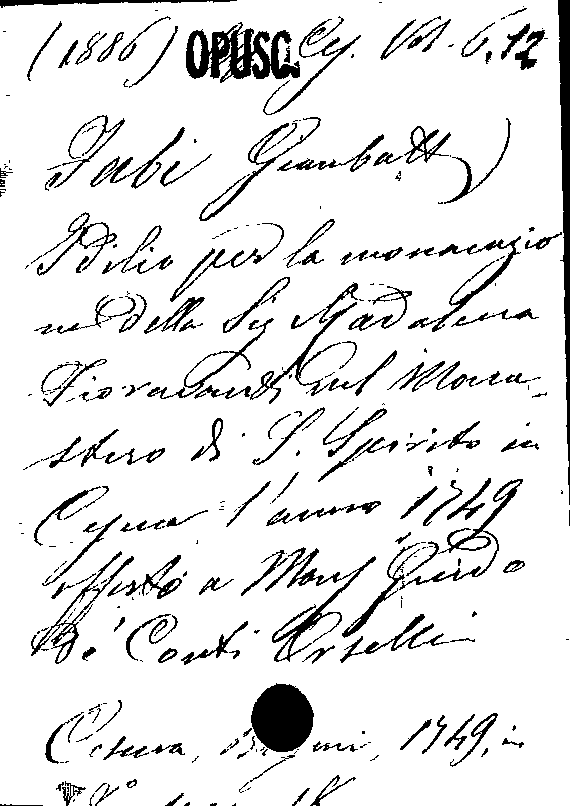 (1886) OPUSC. Vol. 6.12
Fabi Giambatt)
Idilio per la monacazio
ne della Sig Madalena
Fioravanti nel Mona-
stero di S. Spirito in
l'anno 1749
offerto a Mons Guido
De' Conti Orselli
Cesena, 1749, in